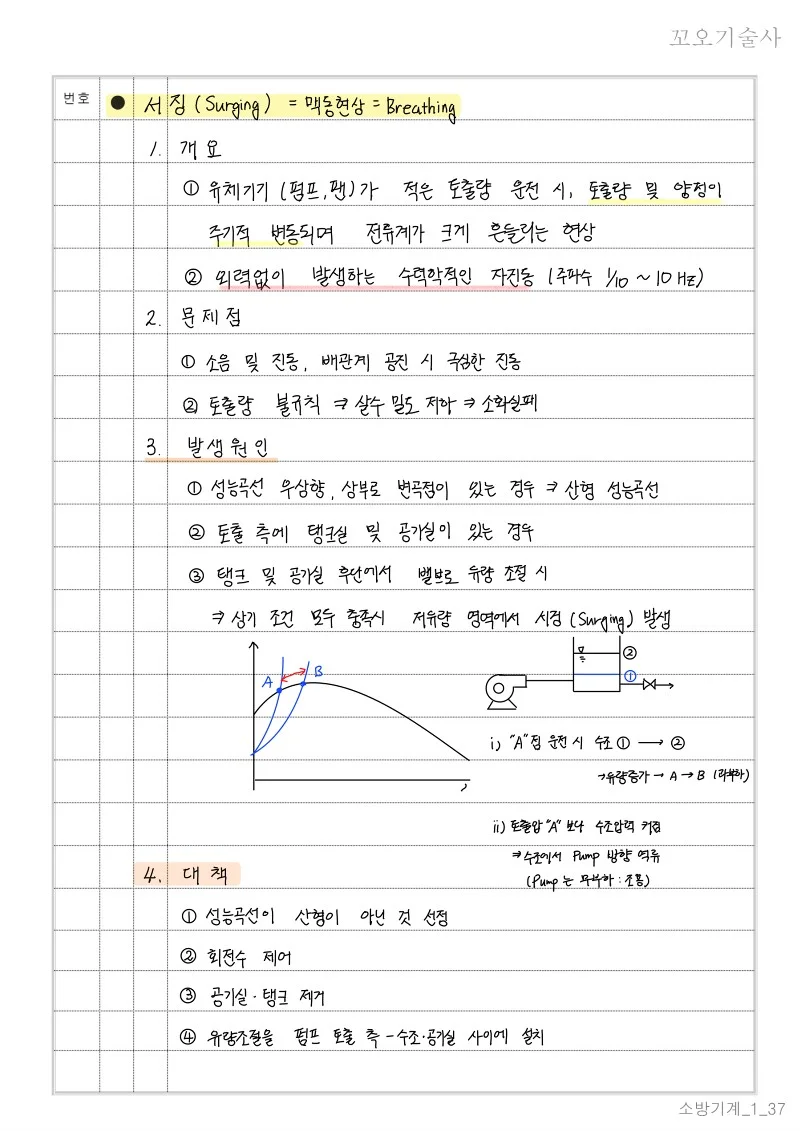 꼬오기술사
번호
● 서징 (Surging) = 맥동현상 = Breathing
1. 개요
① 유체기기 (펌프, 팬)가 적은 토출량 운전 시, 토출량 및 양정이
주기적 변동되며 전류계가 크게 흔들리는 현상
② 외력없이 발생하는 수력학적인 자진동 (주파수 1/10 ~ 10 Hz)
2. 문제점
① 소음 및 진동, 배관계 공진 시 극심한 진동
② 토출량 불규칙 ⇒ 살수 밀도 저하 ⇒ 소화실패
3. 발생원인
① 성능곡선 우상향, 상부로 변곡점이 있는 경우 ⇒ 산형 성능곡선
② 토출 측에 탱크실 및 공기실이 있는 경우
③ 탱크 및 공기실 후단에서 밸브로 유량 조절 시
⇒ 상기 조건 모두 충족시 저유량 영역에서 서징 (Surging) 발생
A B
②
①
i) "A"점 운전 시 수조 ① → ②
→유량증가 → A → B (과부하)
ii) 토출압 "A" 보다 수조압력 커짐
⇒ 수조에서 Pump 방향 역류
(Pump는 무부하 : 조용)
4. 대책
① 성능곡선이 산형이 아닌 것 선정
② 회전수 제어
③ 공기실·탱크 제거
④ 유량조절을 펌프 토출 측 - 수조·공기실 사이에 설치
소방기계_1_37